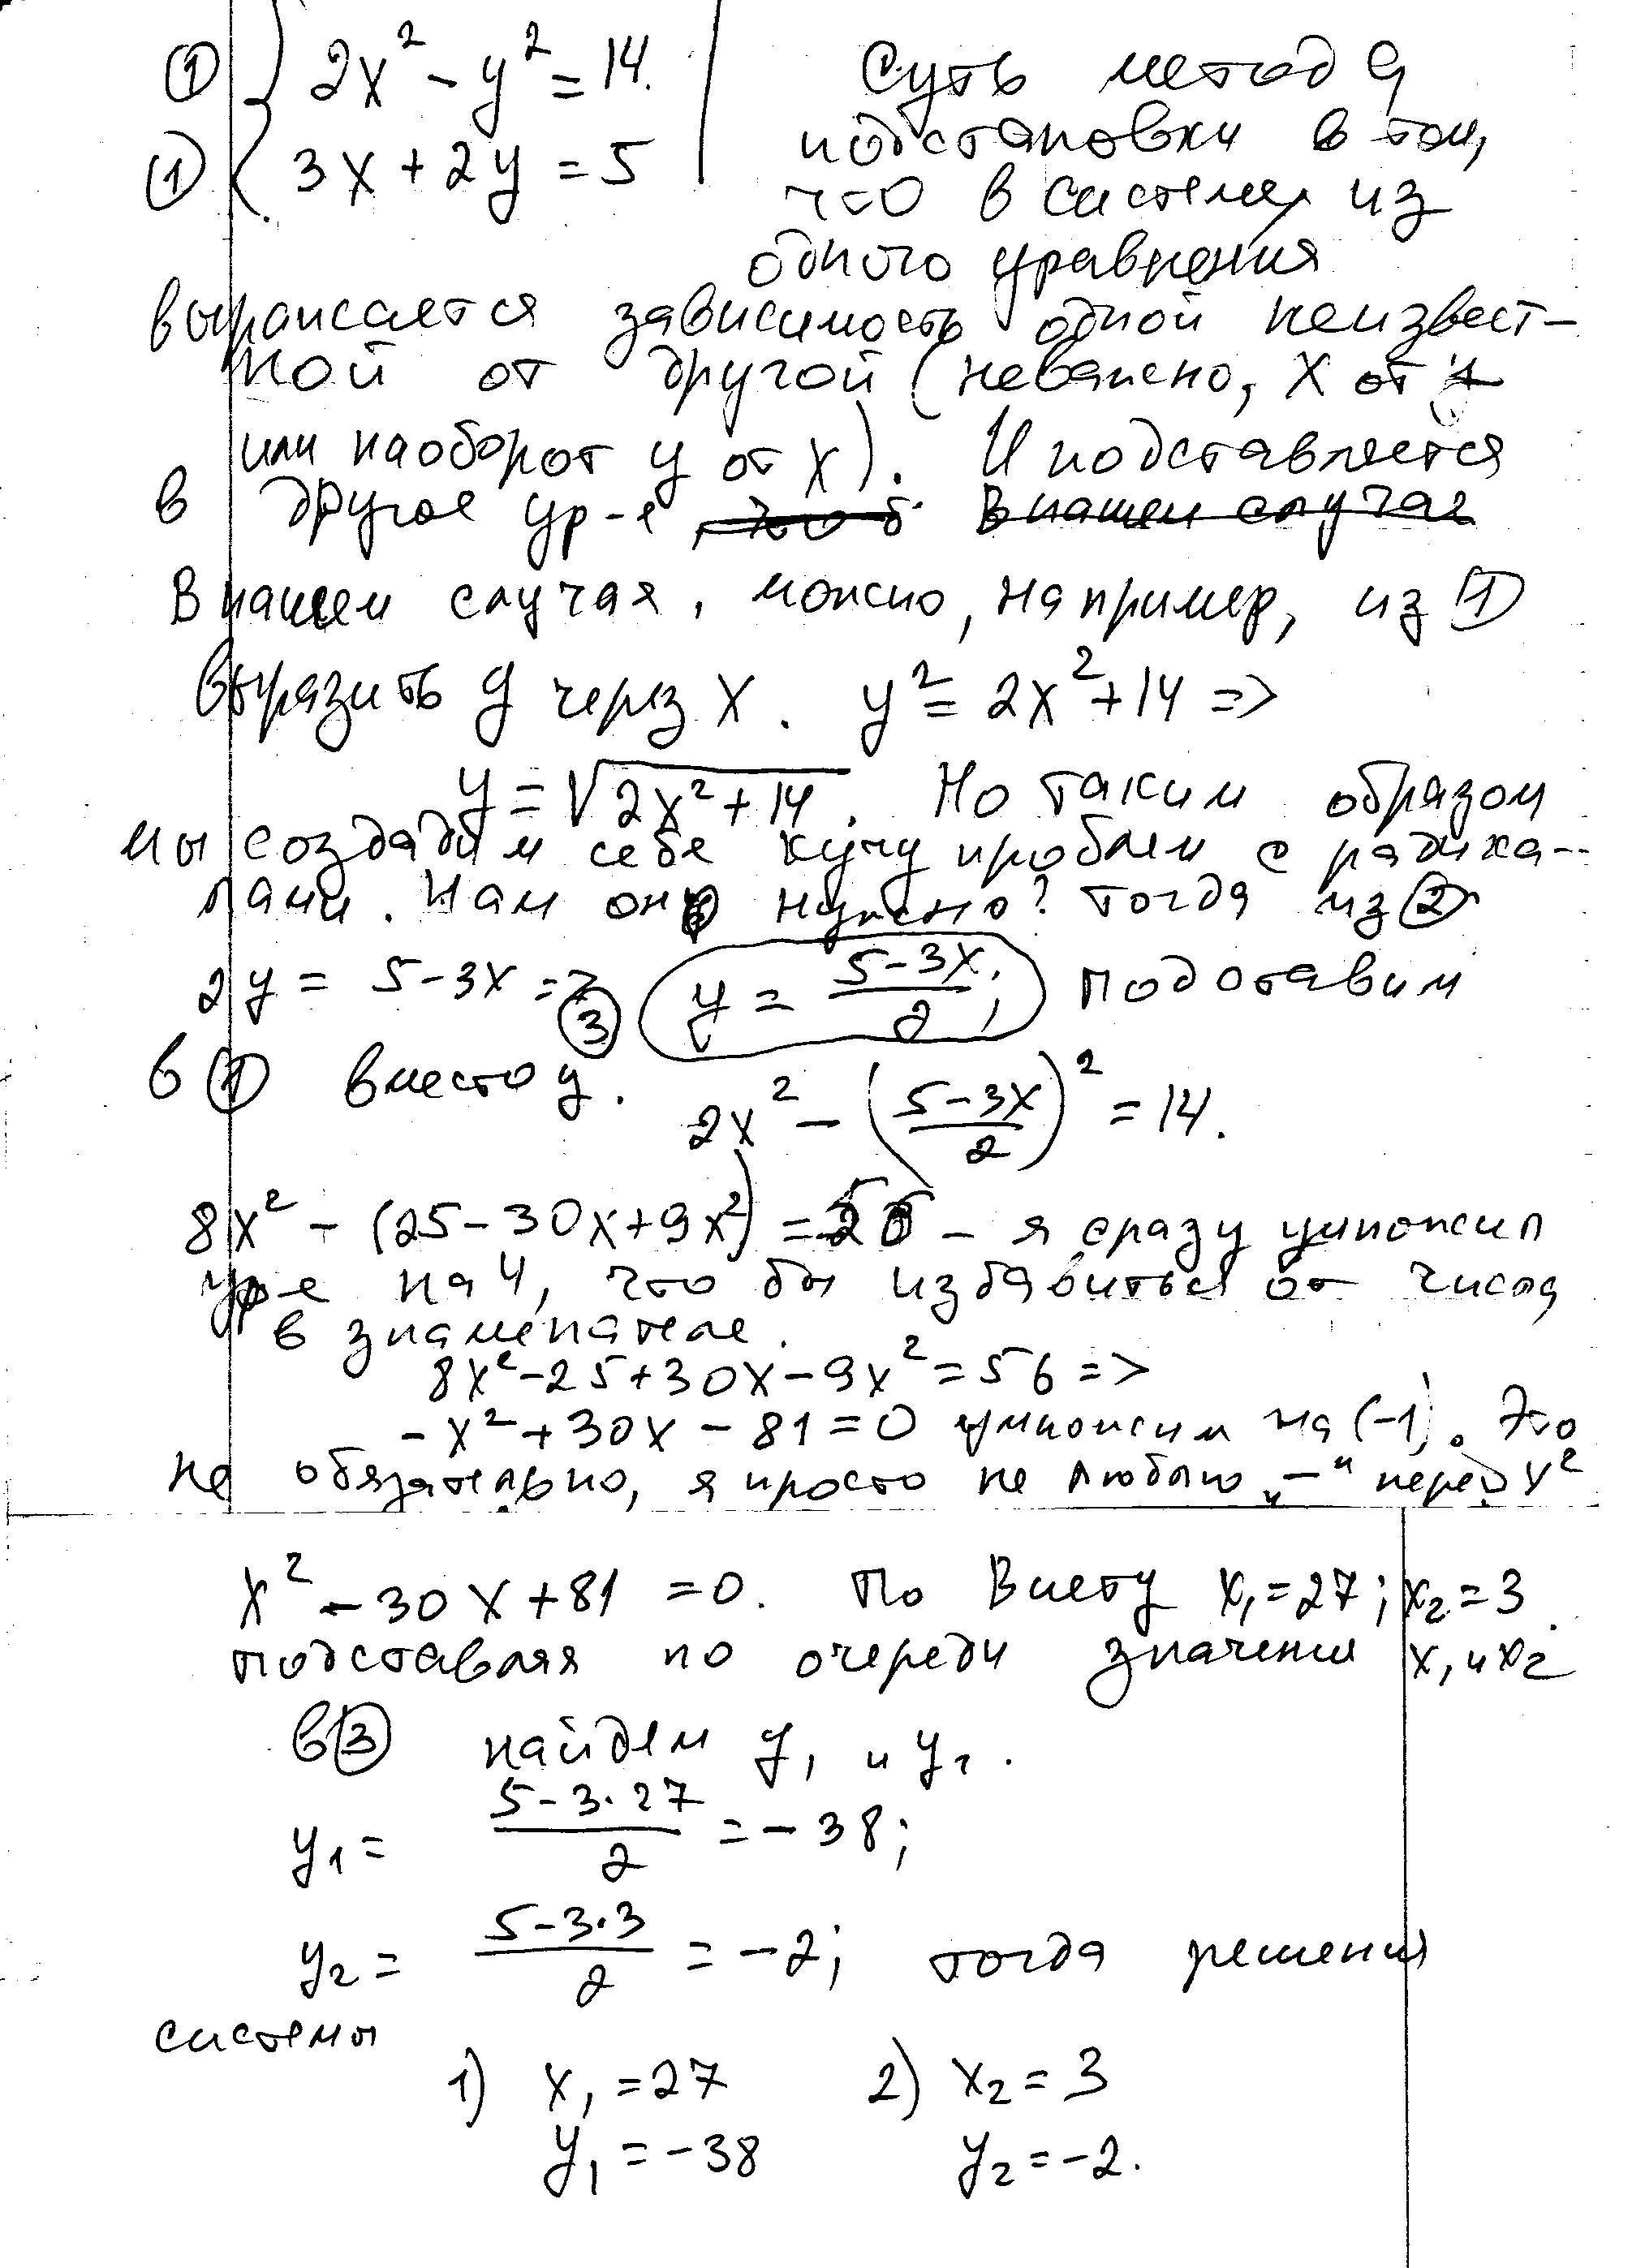 ① { 2x² - y² = 14.
① { 3x + 2y = 5
Суть метода
подстановки в том,
что в системе из
одного уравнения
выражается зависимость одной неизвест-
ной от другой (неважно, x от y
или наоборот y от x). И подставляется
в другое ур-е в нашем случае
В нашем случая, можно, например, из ①
выразить y через x. y² = 2x² + 14 =>
y = √(2x² + 14). Но таким образом
мы создадим себе кучу проблем с радика-
лами. Нам они нужно? тогда из ②
2y = 5 - 3x => ③ y = (5-3x)/2; подставим
в ① вместо y.
2x² - ((5-3x)/2)² = 14.
8x² - (25 - 30x + 9x²) = 56 - я сразу умножил
ур-е на 4, что бы избавиться от числа
в знаменателе.
8x² - 25 + 30x - 9x² = 56 =>
-x² + 30x - 81 = 0 умножим на (-1). Это
не обязательно, я просто не люблю „-" перед x²
x² - 30x + 81 = 0. По Виету x₁ = 27; x₂ = 3
подставляя по очереди значения x₁ и x₂
в ③ найдем y₁ и y₂.
y₁ = (5-3·27)/2 = -38;
y₂ = (5-3·3)/2 = -2; тогда решения
системы
1) x₁ = 27 2) x₂ = 3
y₁ = -38 y₂ = -2.